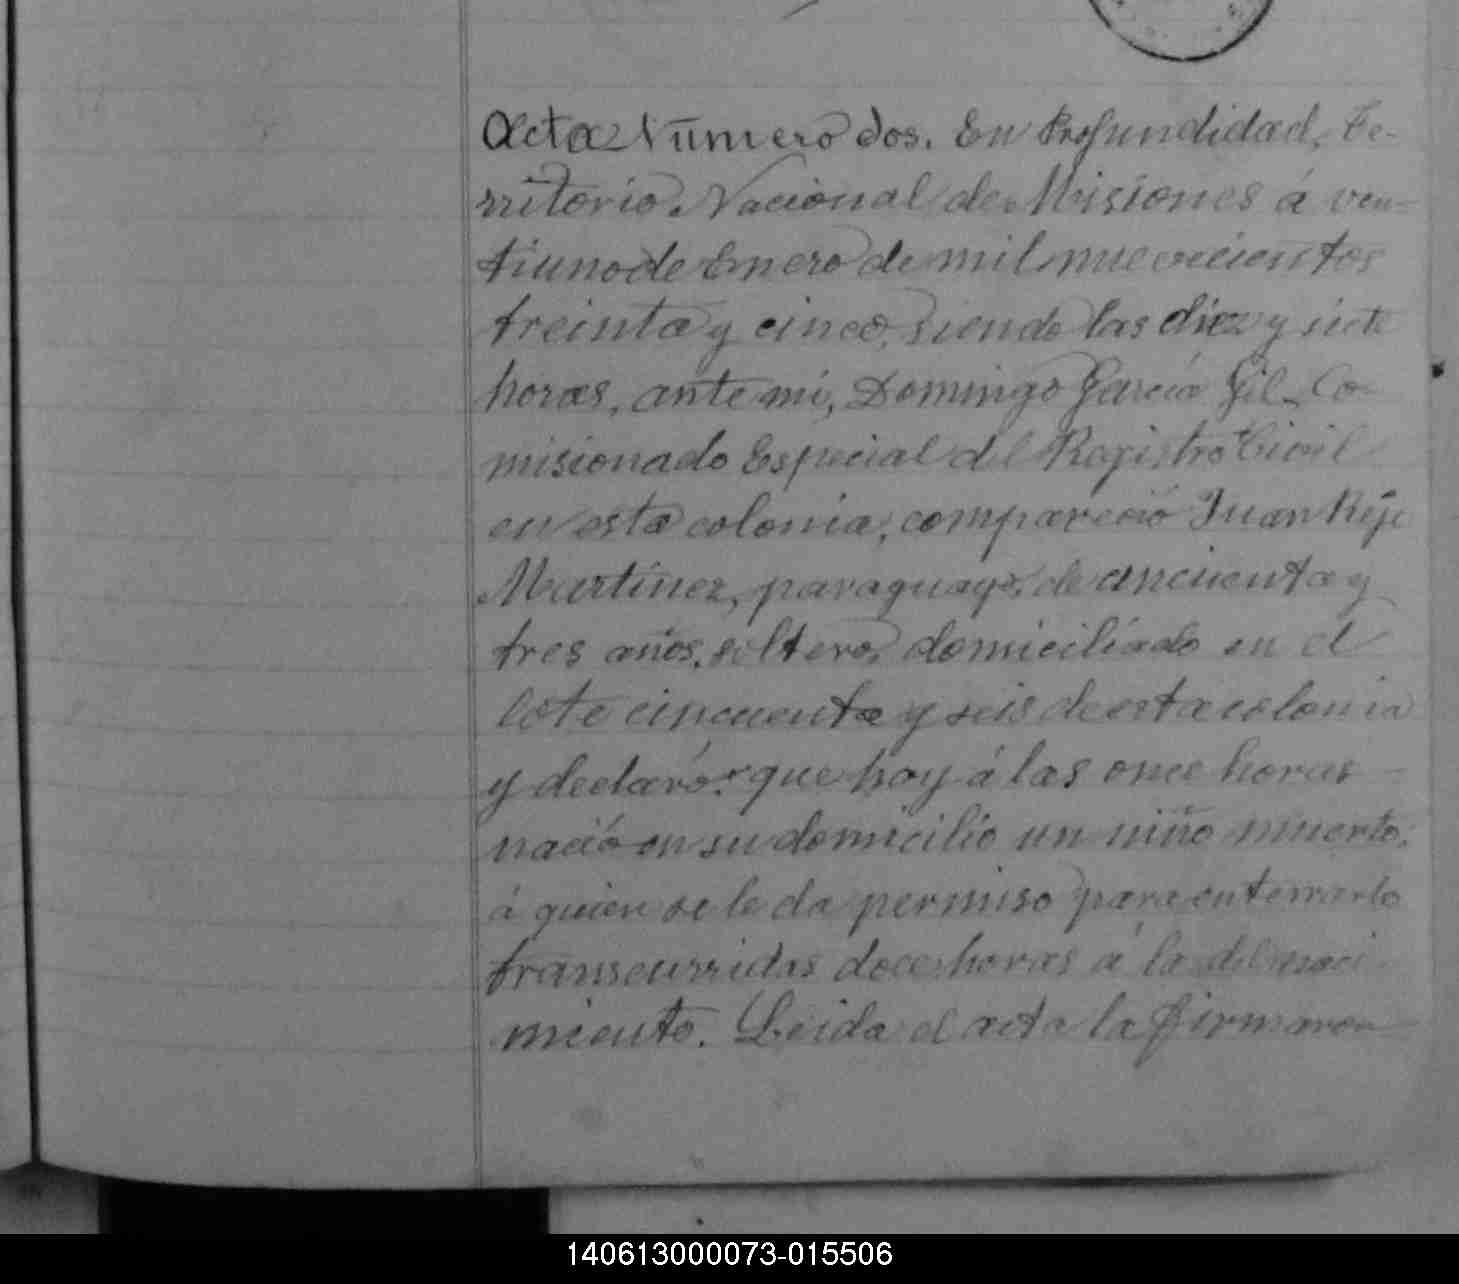 Acta Número dos. En Profundidad, Te-
rritorio Nacional de Misiones á vein-
tiuno de Enero de mil nuevecientos
treinta y cinco, siendo las diez y siete
horas, ante mí, Domingo García Gil, Co-
misionado Especial del Registro Civil
en esta colonia, compareció Juan
Martínez, paraguayo, de cincuenta y
tres años, soltero, domiciliado en el
lote cincuenta y seis de esta colonia
y declaró: que hoy á las once horas
nació en su domicilio un niño muerto,
á quien se le da permiso para enterrarlo
transcurridas doce horas á la del naci
miento. Leida el acta la firmaron
140613000073-015506